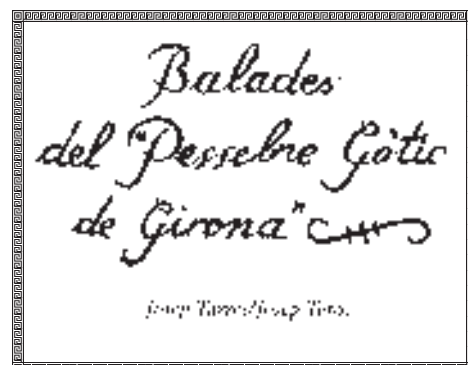 Balades
del "Pessebre Gòtic
de Girona"
Josep Tarrés/Josep Tero.